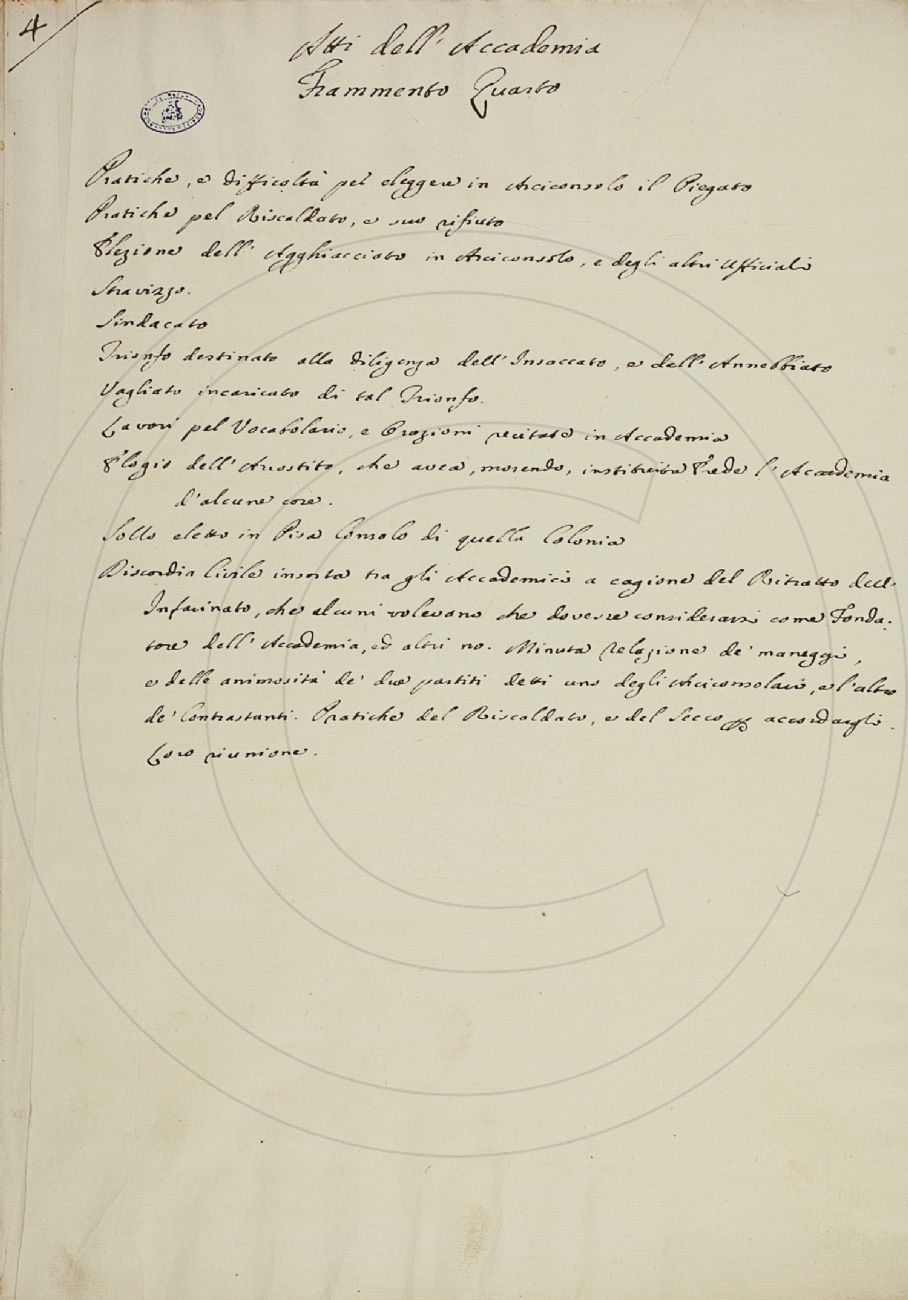 4
Atti dell' Accademia
Frammento Quarto
Pratiche, e difficoltà pel eleggere in Arciconsolo il Piegato
Pratiche pel Riscaldato, e suo rifiuto
Elezione dell' Agghiacciato in Arciconsolo, e degli altri Ufficiali
Stravizzo.
Sindacato
Trionfo destinato alla diligenza dell' Insaccato, e dell' Annebbiato
Vagliato incaricato di tal Trionfo.
Lavori pel Vocabolario, e Orazioni recitate in Accademia
Elogio dell' Arrostito, che avea, morendo, instituita Erede l' Accademia
d' alcune cose.
Sollo eletto in Pisa Consolo di quella Colonia
Discordia Civile insorta tra gli Accademici a cagione del Ritratto dell'
Infarinato, che alcuni volevano che dovesse considerarsi come Fonda-
tore dell' Accademia, ed altri no. Minuta relazione de' maneggi,
e delle animosità de' due partiti detti uno degli Arciconsolari, e l' altro
de' Contrastanti. Pratiche del Riscaldato, e del Secco p accordargli.
Loro riunione.